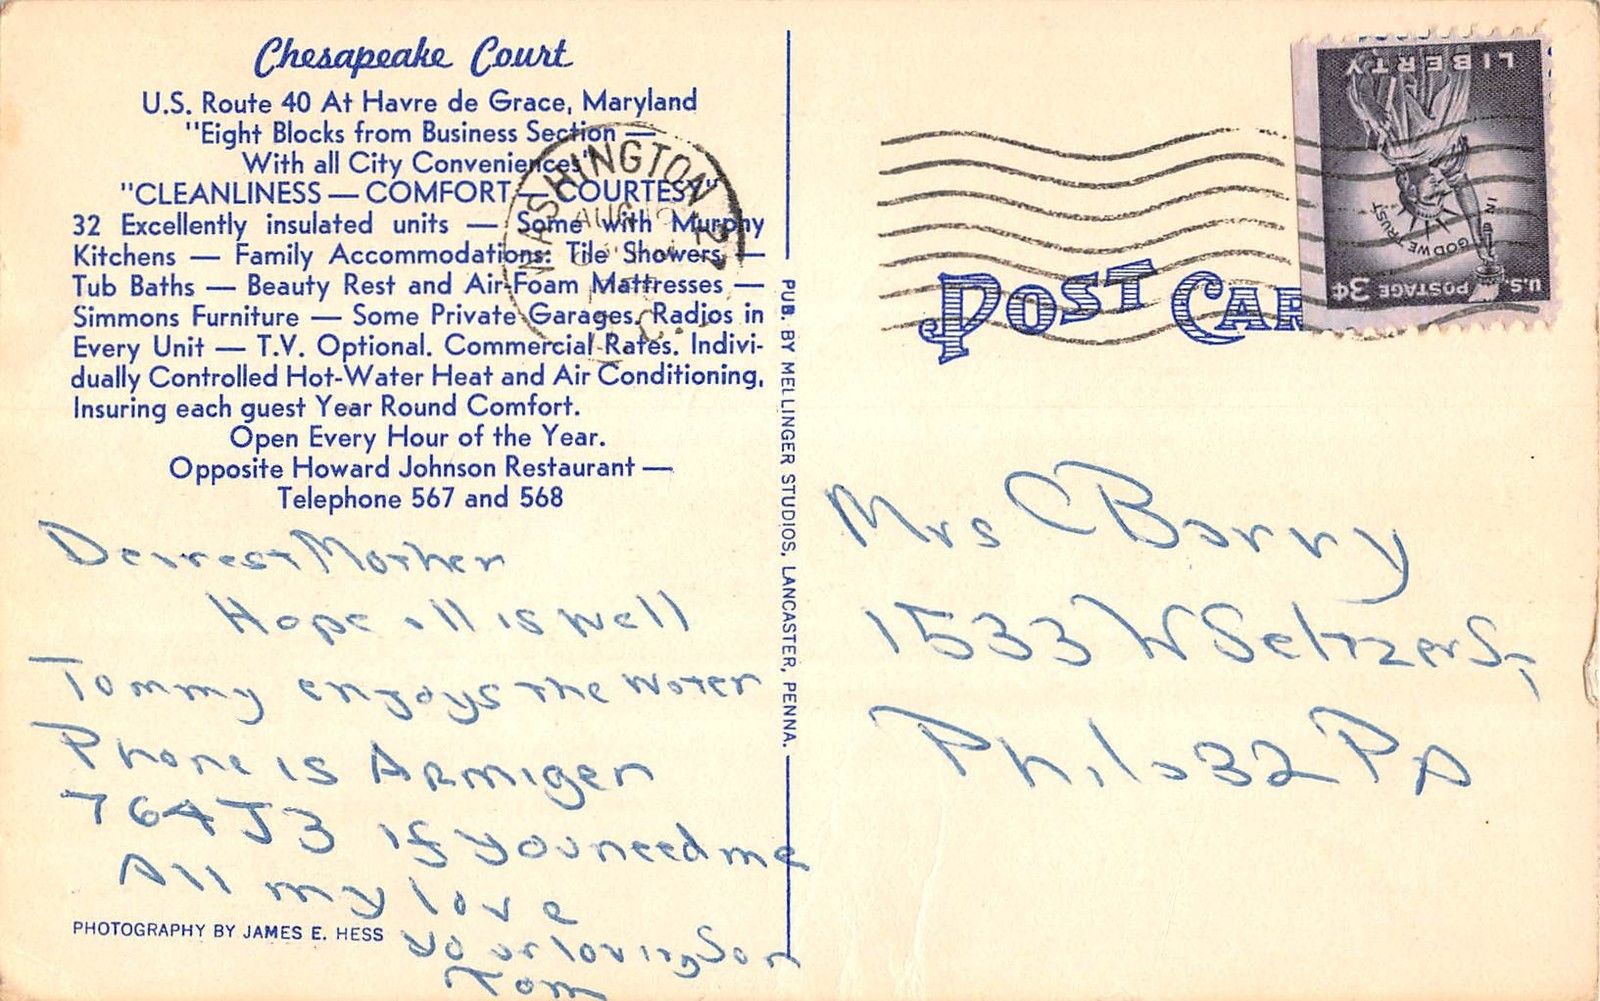 Chesapeake Court
U.S. Route 40 At Havre de Grace, Maryland
"Eight Blocks from Business Section —
With all City Conveniences"
"CLEANLINESS — COMFORT — COURTESY"
32 Excellently insulated units — Some with Murphy
Kitchens — Family Accommodations: Tile Showers, —
Tub Baths — Beauty Rest and Air-Foam Mattresses —
Simmons Furniture — Some Private Garages. Radios in
Every Unit — T.V. Optional. Commercial Rates. Indivi-
dually Controlled Hot-Water Heat and Air Conditioning,
Insuring each guest Year Round Comfort.
Open Every Hour of the Year.
Opposite Howard Johnson Restaurant —
Telephone 567 and 568
Dearest Mother
Hope all is well
Tommy enjoys the water
Phone is Armiger
764J3 if you need me
All my love
your loving Son
Tom
PHOTOGRAPHY BY JAMES E. HESS
PUB. BY MELLINGER STUDIOS, LANCASTER, PENNA.
WASHINGTON
AUG
D.C.
POST CAR
LIBERTY
IN GOD WE TRUST
U.S. POSTAGE 3¢
Mrs C Barry
1533 W Seltzer St
Phila 32 Pa